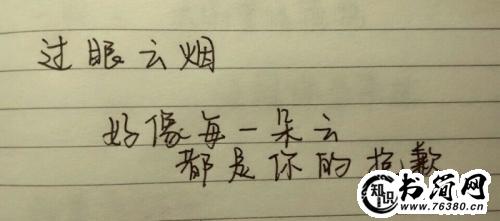 过眼云烟
好像每一朵云
都是你的抱歉
知识
书简网
www.76380.cn